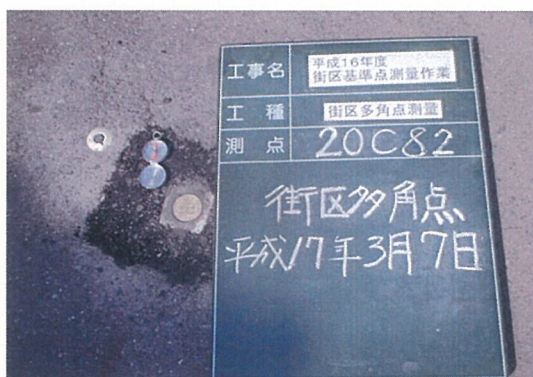 工事名 平成16年度
街区基準点測量作業
工種 街区多角点測量
測点 20C82
街区多角点
平成17年3月7日